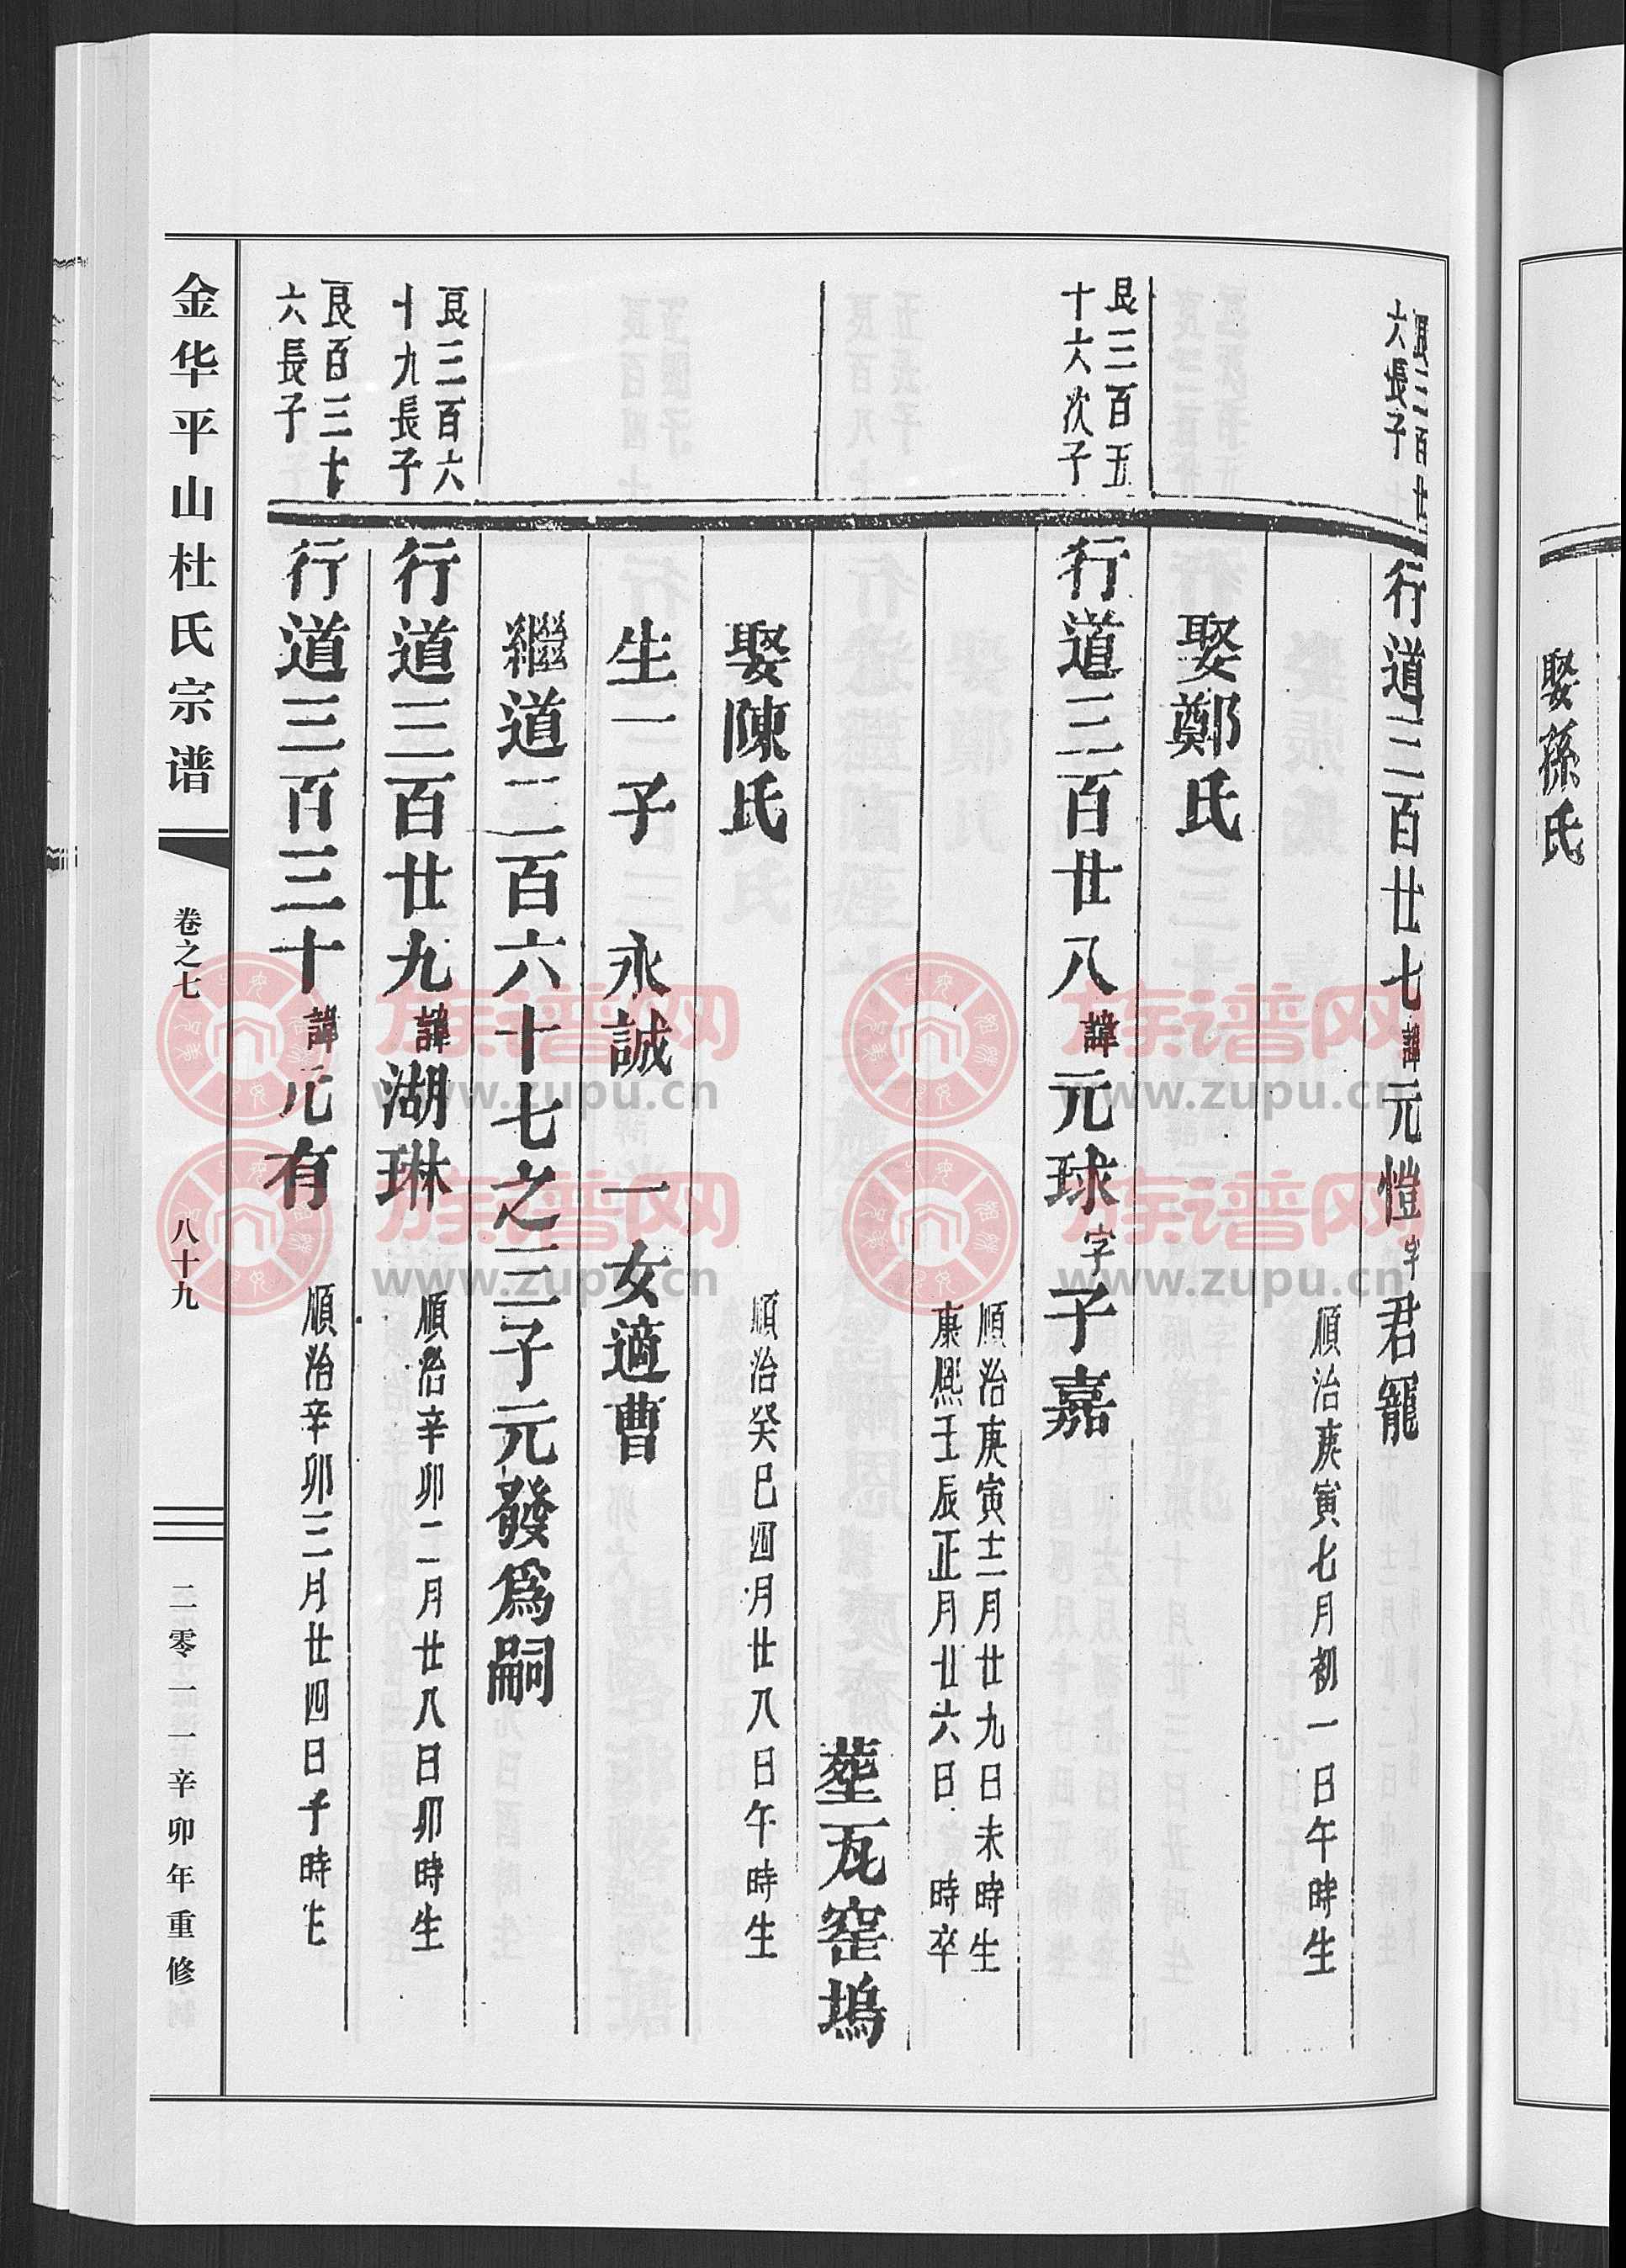 娶孫氏
良三百廿
六長子
行道三百廿七諱元愷字君寵
順治庚寅七月初一日午時生
娶鄭氏
艮三百五
十六次子
行道三百廿八諱元球字子嘉
順治庚寅十二月廿九日未時生
康熙壬辰正月廿六日 時卒
葬瓦窑塢
娶陳氏
順治癸巳四月廿八日午時生
生一子 永誠 一女適曹
繼道二百六十七之三子元發為嗣
良三百六
十九長子
行道三百廿九諱湖琳
順治辛卯二月廿八日卯時生
艮百三十
六長子
行道三百三十諱元有
順治辛卯三月廿四日子時生
金华平山杜氏宗谱
卷之七
八十九
二零一一辛卯年重修
族谱网
www.zupu.cn
族谱网
www.zupu.cn
族谱网
www.zupu.cn
族谱网
www.zupu.cn